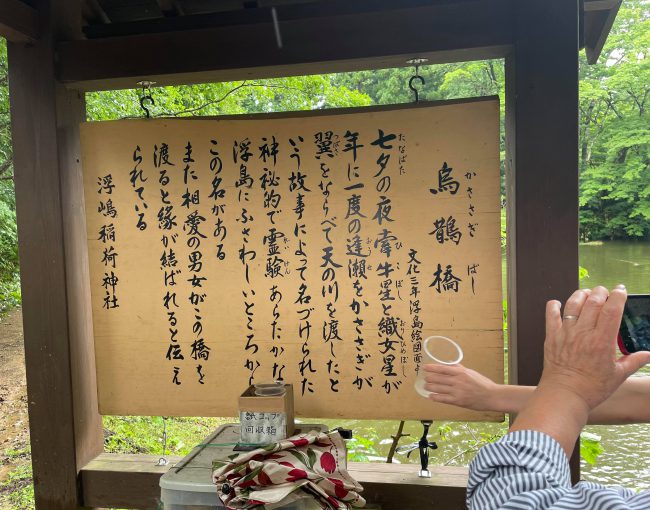 烏鵲橋
かささぎ ばし
文化三年浮島絵図面よ
七夕の夜牽牛星と織女星が
たなばた ひこぼし おりひめぼし
年に一度の逢瀬をかささぎが
おうせ
翼をならべて天の川を渡したと
つばさ
いう故事によって名づけられた
神秘的で霊験あらたかな
れいけん
浮島にふさわしいところから
この名がある
また相愛の男女がこの橋を
渡ると縁が結ばれると伝え
られている
浮嶋稲荷神社
紙コップ
回収箱